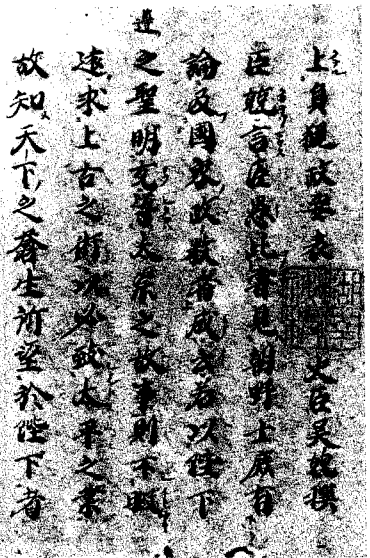 上貞観政要表史臣吳兢撰
臣兢言臣愚比嘗見朝野士庶有
論及國家政教者咸云若以陛下
遵
之聖明克遵太宗之故事則不暇
遠求上古之術必致太平之業
故知天下之蒼生所望於陛下者